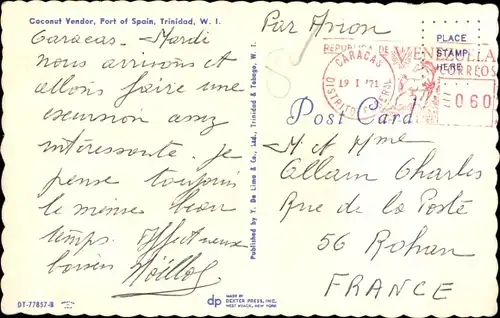 Coconut Vendor, Port of Spain, Trinidad, W. I.
Caracas - Mardi
nous arrivons et
allons faire une
excursion assez
intéressante. Je
pense toujours
le même beau
temps. Affectueux
baisers
DT-77857-B
Published by Y. De Lima & Co., Ltd., Trinidad & Tobago, W. I.
dp
MADE BY
DEXTER PRESS, INC.
WEST NYACK, NEW YORK
Par Avion
PLACE
STAMP
HERE
REPUBLICA DE VENEZUELA
CORREOS
CARACAS
19 I '71
DISTRITO FEDERAL
060
Post Card
M et Mme
Allain Charles
Rue de la Poste
56 Rohan
FRANCE